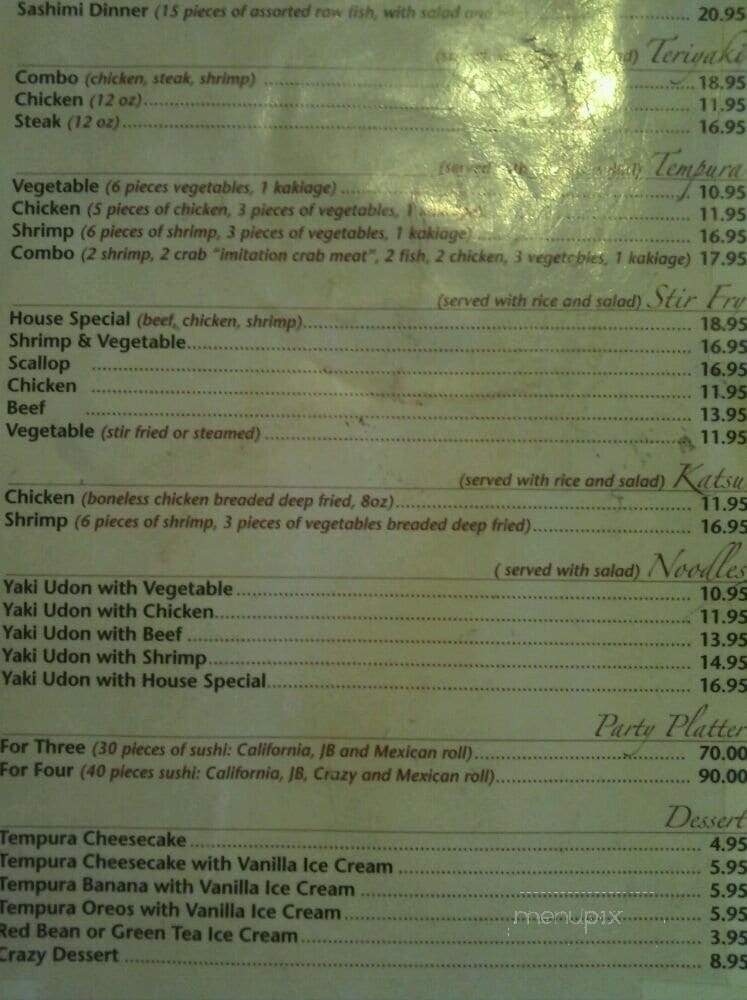 Sashimi Dinner (15 pieces of assorted raw fish, with salad and ........ 20.95
Teriyaki
Combo (chicken, steak, shrimp) ........ 18.95
Chicken (12 oz) ........ 11.95
Steak (12 oz) ........ 16.95
(served with salad) Tempura
Vegetable (6 pieces vegetables, 1 kakiage) ........ 10.95
Chicken (5 pieces of chicken, 3 pieces of vegetables, 1 ........ 11.95
Shrimp (6 pieces of shrimp, 3 pieces of vegetables, 1 kakiage) ........ 16.95
Combo (2 shrimp, 2 crab "imitation crab meat", 2 fish, 2 chicken, 3 vegetables, 1 kakiage) 17.95
(served with rice and salad) Stir Fry
House Special (beef, chicken, shrimp) ........ 18.95
Shrimp & Vegetable ........ 16.95
Scallop ........ 16.95
Chicken ........ 11.95
Beef ........ 13.95
Vegetable (stir fried or steamed) ........ 11.95
(served with rice and salad) Katsu
Chicken (boneless chicken breaded deep fried, 8oz) ........ 11.95
Shrimp (6 pieces of shrimp, 3 pieces of vegetables breaded deep fried) ........ 16.95
( served with salad) Noodles
Yaki Udon with Vegetable ........ 10.95
Yaki Udon with Chicken ........ 11.95
Yaki Udon with Beef ........ 13.95
Yaki Udon with Shrimp ........ 14.95
Yaki Udon with House Special ........ 16.95
Party Platter
For Three (30 pieces of sushi: California, JB and Mexican roll) ........ 70.00
For Four (40 pieces sushi: California, JB, Crazy and Mexican roll) ........ 90.00
Dessert
Tempura Cheesecake ........ 4.95
Tempura Cheesecake with Vanilla Ice Cream ........ 5.95
Tempura Banana with Vanilla Ice Cream ........ 5.95
Tempura Oreos with Vanilla Ice Cream ........ 5.95
menupix
Red Bean or Green Tea Ice Cream ........ 3.95
Crazy Dessert ........ 8.95